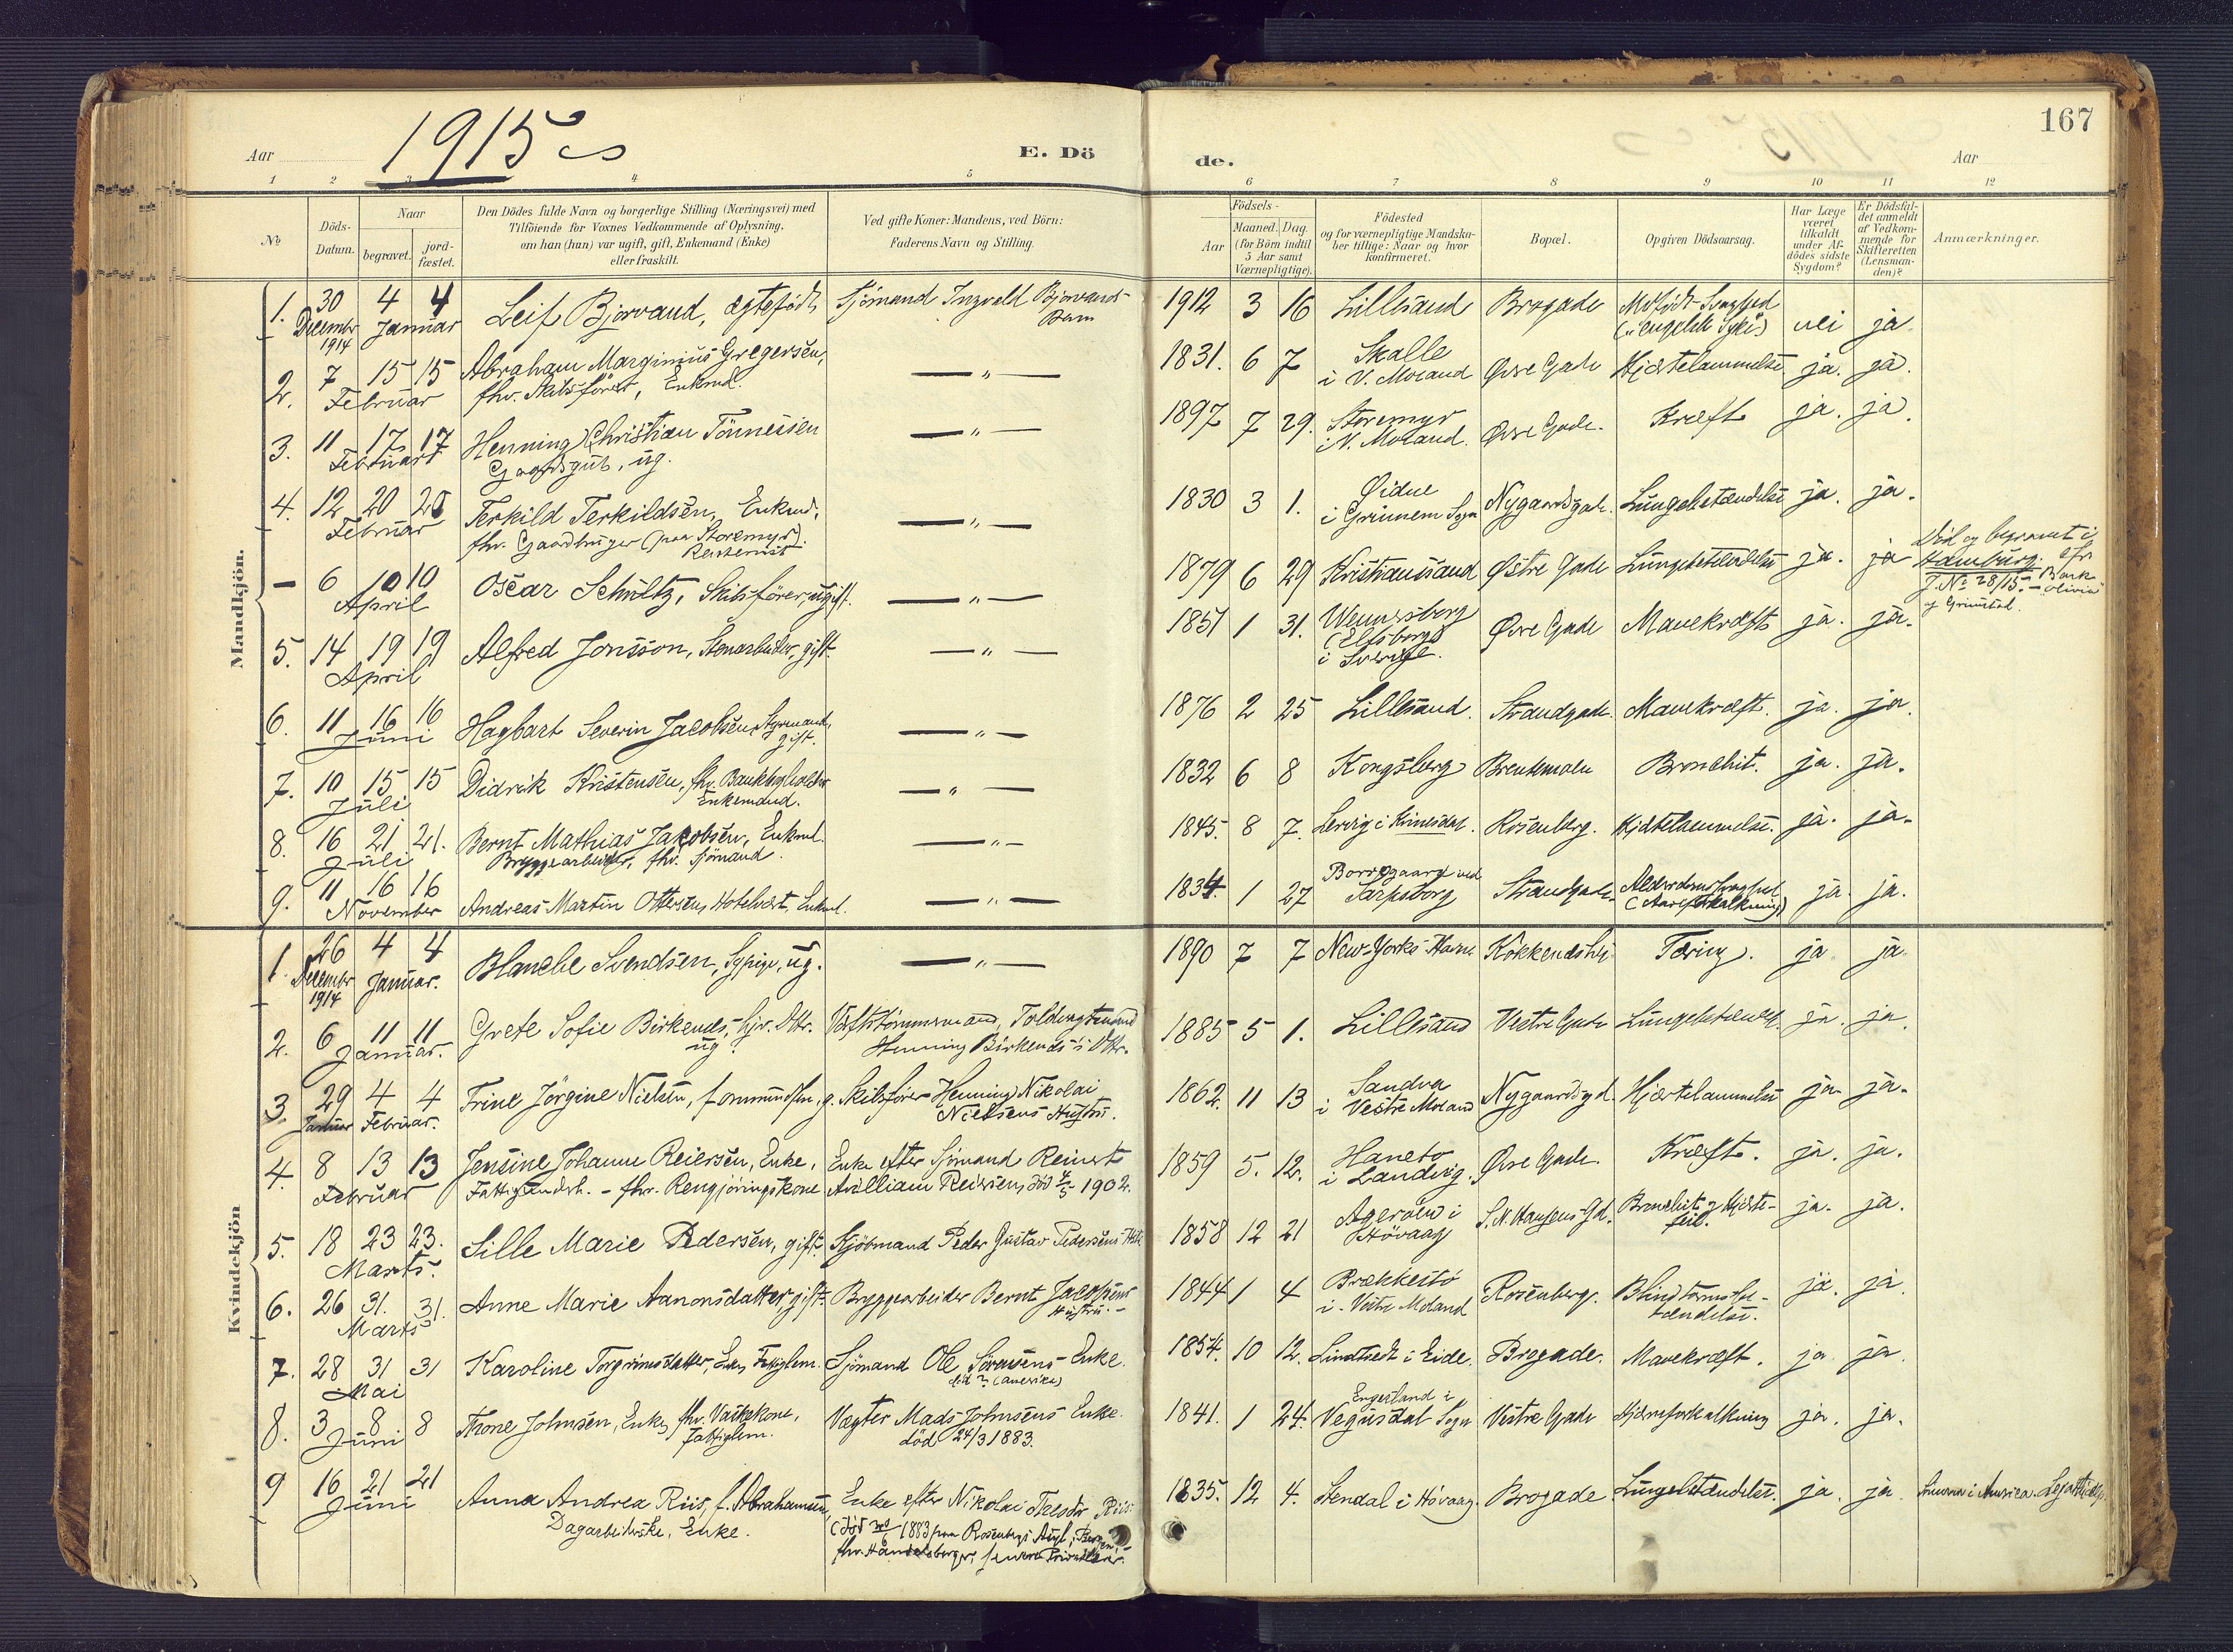 167
Aar
1915
E. Dö
de.
Aar
1 2 3 4 5 6 7 8 9 10 11 12
No
Döds-Datum.
Naar
begravet.
jord-fæstet.
Den Dödes fulde Navn og borgerlige Stilling (Næringsvei) med
Tilföiende for Voxnes Vedkommende af Oplysning,
om han (hun) var ugift, gift, Enkemand (Enke)
eller fraskilt.
Ved gifte Koner: Mandens, ved Börn:
Faderens Navn og Stilling.
Födsels-
Aar
Maaned.
Dag
(for Börn indtil
5 Aar samt
Værnepligtige).
Födested
og for værnepligtige Mandska-
ber tillige: Naar og hvor
konfirmeret.
Bopæl.
Opgiven Dödsaarsag.
Har Læge
været
tilkaldt
under Af-
dödes sidste
Sygdom?
Er Dödsfal-
det anmeldt
af Vedkom-
mende for
Skifteretten
(Lensman-
den)?
Anmærkninger.
Mandkjön.
1. 30 Decembr 1914 4 4 Januar Leif Bjorvand, ægtefödt, Sjömand Ingvald Bjorvands Barn 1912 3 16 Lillesand Brogade Medfödt Svaghed ("engelsk Syke") nei ja
2. 7 15 15 Februar Abraham Marginius Gregersen, fhv. Skibsförer, Enkmd. — " — 1831. 6 7 Skalle i V. Moland Øvre Gade Hjertelammelse ja. ja.
3. 11 17 17 Februar Henning Christian Tönnesen Gaardsgut, ug. — " — 1897 7 29. Storemyr i V. Moland. Øvre Gade. Kræft ja. ja.
4. 12 20 20 Februar Terkild Terkildsen, Enkmd, fhv. Gaardbruger (paa Storemyr). — " — 1830 3 1. Øidne i Sogn Nygaardsgade. Lungebetændelse ja. ja.
— 6 10 10 April Oscar Schultz, Skibsförer, ugift. — " — 1879 6 29 Kristianssand Østre Gade Lungebetændelse ja. ja Död og begravet i Hamburg. cfr J. No 28/15. - Bark "Olivia" af Grimstad.
5. 14 19 19 April Alfred Jonsson, Stenarbeider, gift. — " — 1851 1 31. Wennersborg (Elfsborg) i Sverige. Øvre Gade Mavekræft ja. ja.
6. 11 16 16 Juni Hagbart Severin Jacobsen, Styrmand, gift. — " — 1876 2 25 Lillesand. Strandgade. Mavekræft. ja. ja.
7. 10 15 15 Juli Didrik Kristensen, fhv. Bankbogholder Enkemand. — " — 1832 6 8 Kongsberg Brentemoen Bronchit. ja. ja.
8. 16 21 21. Juli Bernt Mathias Jakobsen, Enkmd. Bryggearbeider, fhv. Sjömand. — " — 1845. 8 7. Lervig i Rosenberg. Hjertelammelse. ja. ja.
9. 11 16 16 November Andreas Martin Ottersen, Hotelvært, Enkmd. — " — 1834. 1 27 Borregaard ved Sarpsborg Strandgade. Alderdomssvaghed (Aareforkalkning) ja. ja.
Kvindekjön
1. 26 Decembr 1914 4 4 Januar. Blanche Svendsen, Sypige, ug. — " — 1890 7 7 New-Yorks Havn Kokkenes Tæring. ja ja
2. 6 11 11 Januar. Grete Sofie Birkenes, hjv. Dtr. ug. Værftstömmermand, Toldvagtmand Henning Birkenes's Dtr. 1885 5 1. Lillesand Vestre Gade Lungebetænd. ja. ja.
3. 29 Januar 4 4 Februar. Trine Jörgine Nielsen, g. Skibsförer Henning Nikolai Nielsens Hustru. 1862. 11 13 Sandva i Vestre Moland Nygaardsgd. Hjertelammelse ja. ja.
4. 8 13 13 Februar Jensine Johanne Reiersen, Enke, Fattigunderst. - fhv. Rengjöringskone Enke efter Sjömand Reinert Avilliam Reiersen, död 4/5 1902. 1859 5. 12. Haneto i Landvig. Øvre Gade. Kræft. ja. ja.
5. 18 23 23. Marts. Sille Marie Pedersen, gift. Sjömand Peder Gustav Pedersens Hstr 1858 12 21 Ageröen i Hövaag S. N. Hansens Gd. Bronchit og Hjerte-feil. ja. ja.
6. 26 31. 31. Marts Anne Marie Aanonsdatter, gift. Bryggearbeider Bernt Jacobsens Hustru. - 1844 1 4 Brækkestö i Vestre Moland Rosenberg. Blindtarmsbe-tændelse. ja. ja.
7. 28 31 31 Mai Karoline Torgrimsdatter, Enke, Fattiglem. Sjömand Ole Sörensens Enke. död ? (Amerika) 1854. 10 12. Lindtveit i Eide. Brogade. Mavekræft. ja ja.
8. 3 8 8 Juni Trone Johnsen, Enke, fhv. Vaskekone, Fattiglem. Vægter Mads Johnsens Enke. död 24/3 1883. 1841. 1 24. Engesland i Vegusdal Sogn Vestre Gade Hjerneforkalkning ja. ja.
9 16 21 21 Juni Anna Andrea Riis, f. Abrahamsen, Dagarbeiderske, Enke. Enke efter Nikolai Theodor Riis. (död 1883 paa Rosenbergs Asyl, Bergen, fhv. Handelsborger, senere Privatlærer. 1835. 12 4. Stendal i Hövaag. Brogade Lungebetændelse. ja. ja